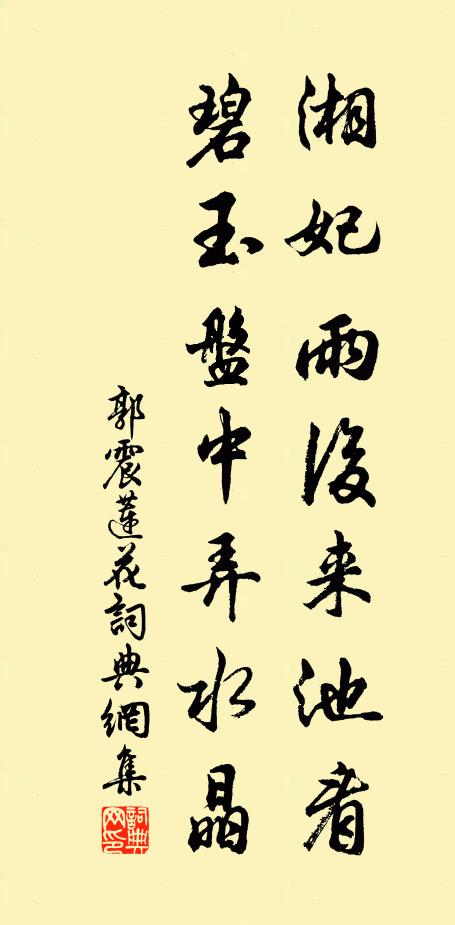 湘妃雨後来池看
碧玉盤中弄水晶
郭震蓮花詞典網集
詞典网印